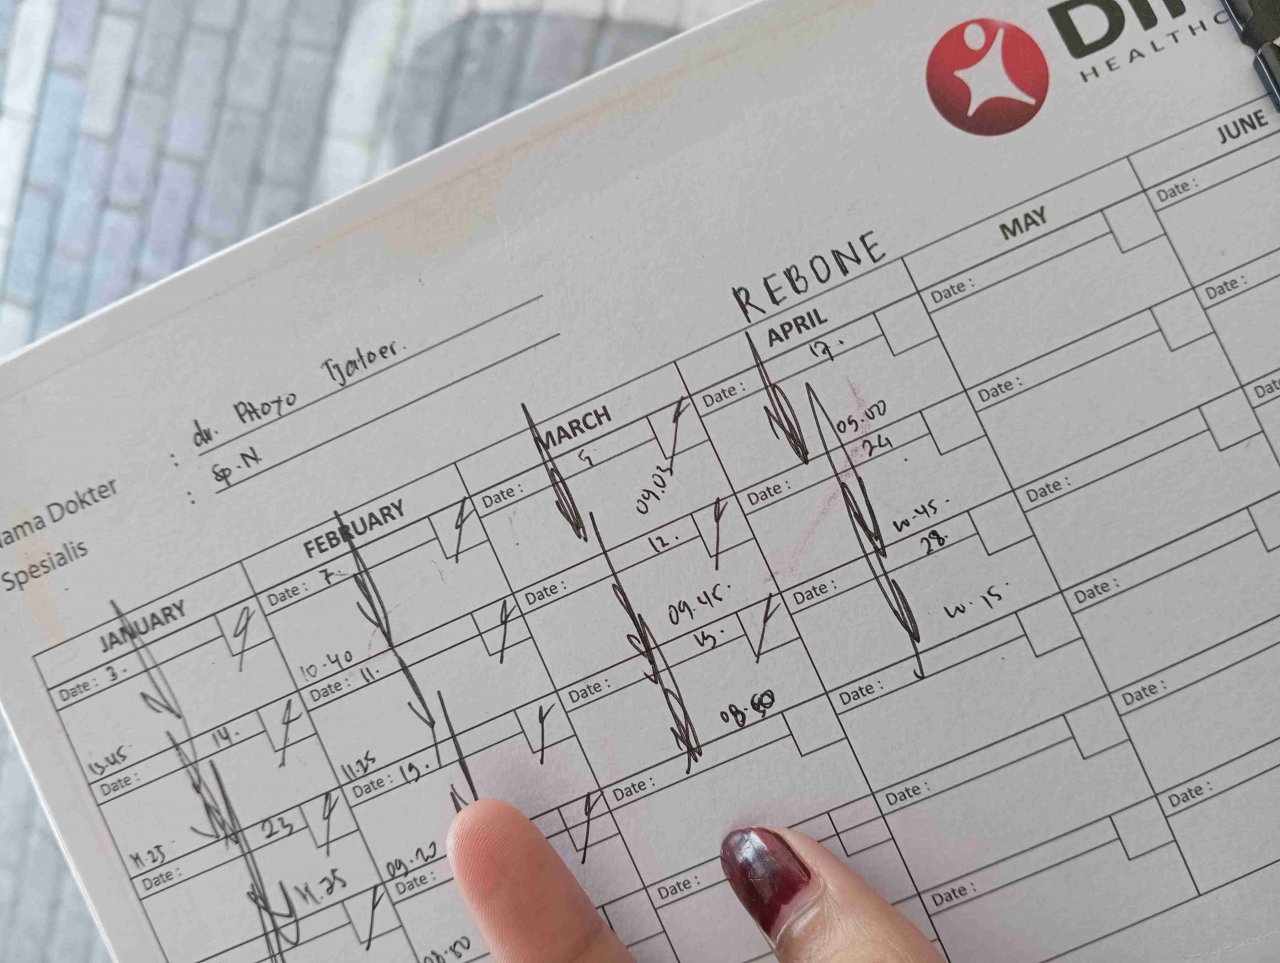 HEALTHC
REBONE
Nama Dokter : dr. PAOYO Tjaloer.
Spesialis : Sp.N
JANUARY
Date : 3.
13.45
Date : 14.
11.25
Date : 23
11.25
FEBRUARY
Date : 7.
10.40
Date : 11.
11.25
Date : 19.
09.20
Date :
08.50
MARCH
Date : 5
09.05
Date : 12.
09.45.
Date : 13.
08.50
Date :
APRIL
Date : 17.
09.00
Date : 24
10.45.
Date : 28.
10.15
Date :
Date :
Date :
MAY
Date :
Date :
Date :
Date :
Date :
JUNE
Date :
Date :
Date :